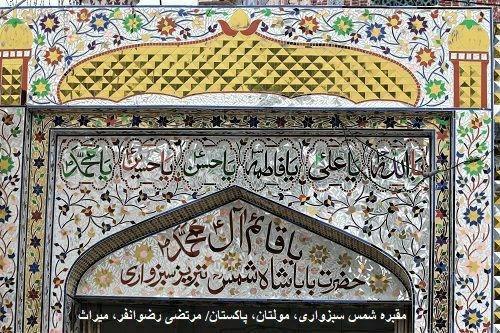 یا اللہ یا علیؑ یا فاطمہؑ یا حسنؑ یا حسینؑ یا محمدؐ
یا قائم آل محمدؐ
حضرت بابا شاہ شمس تبریز سبزواری
مقبره شمس سبزواری، مولتان، پاکستان/ مرتضی رضوانفر، میراث